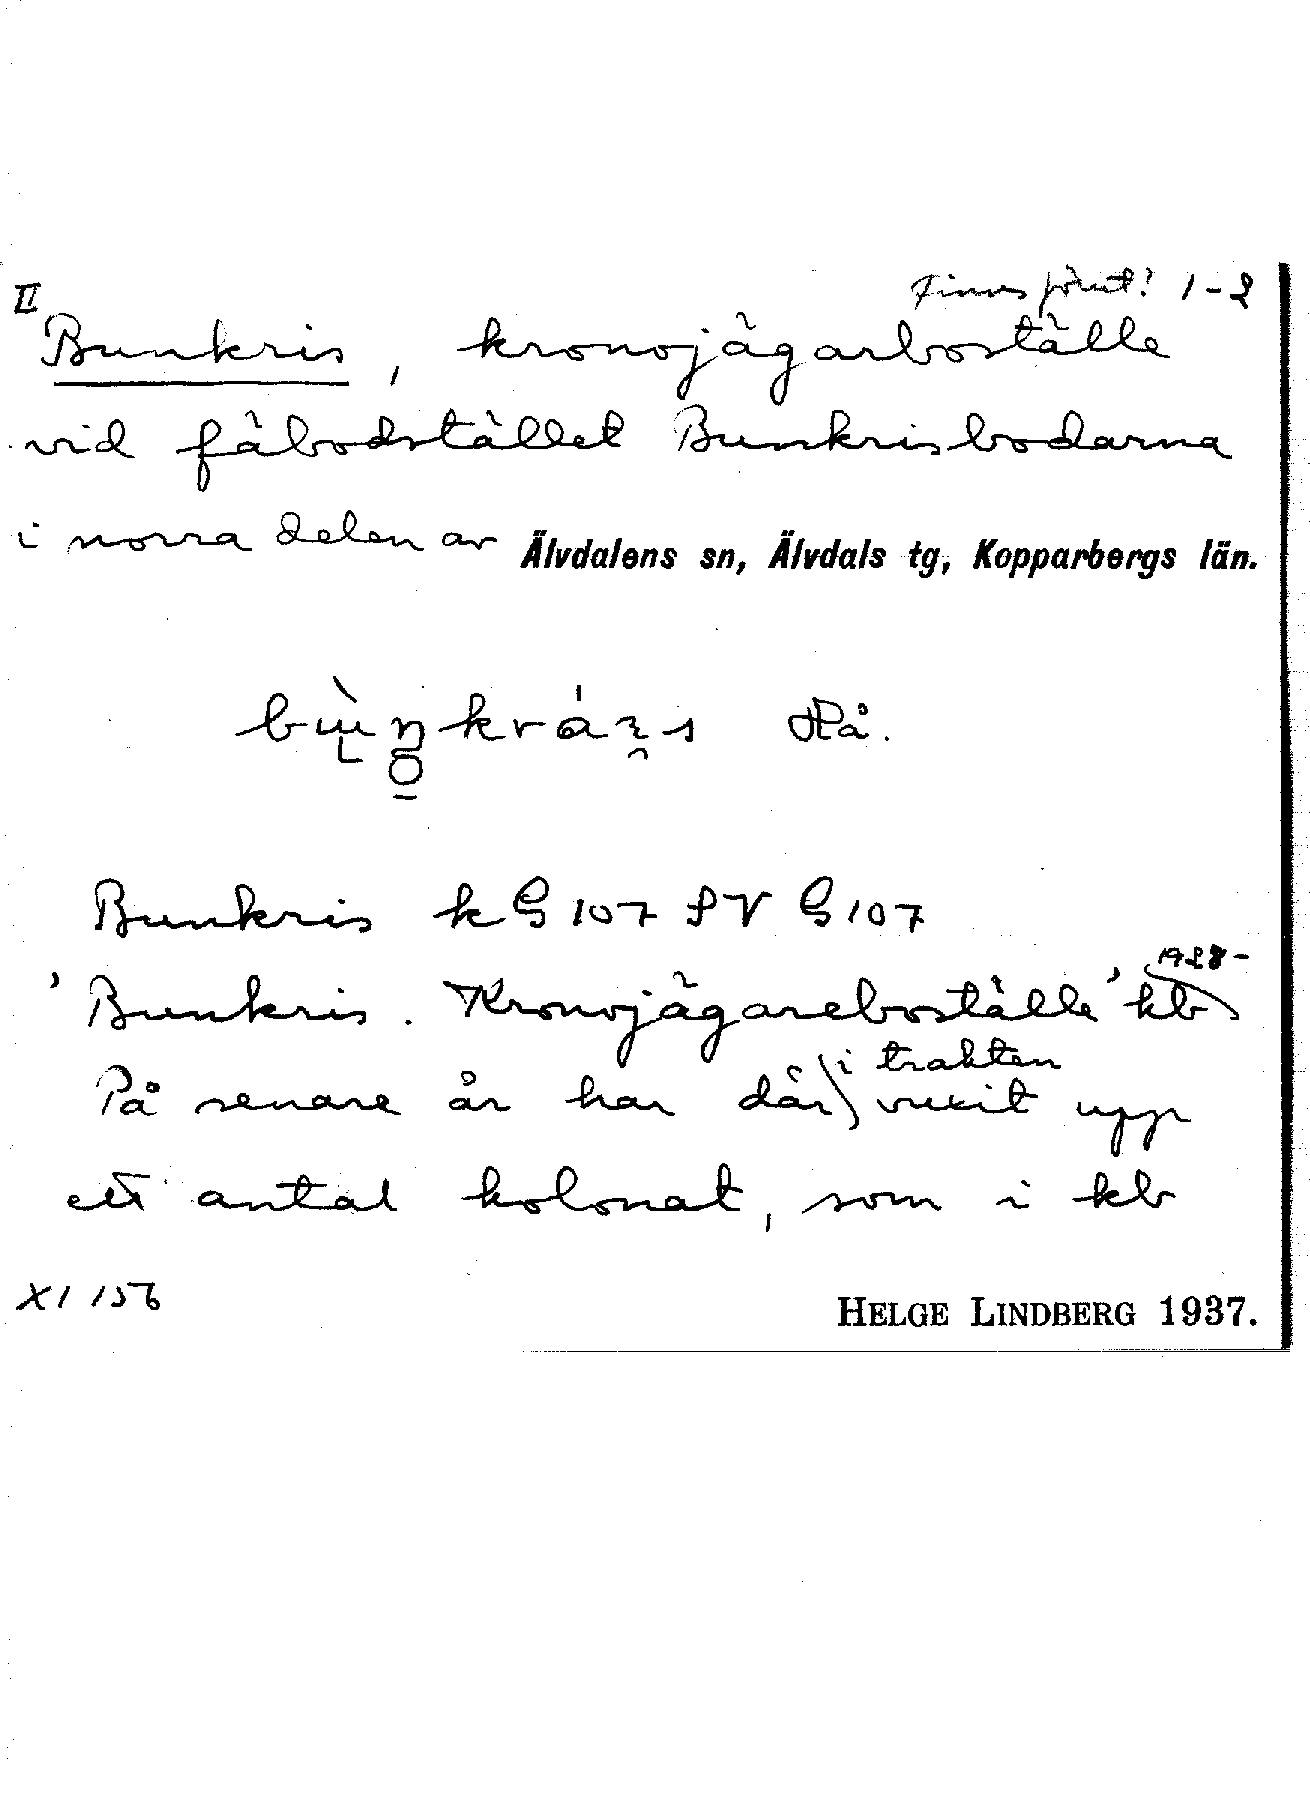 II Finnes förut? 1-2
Bunkris, kronojägarboställe
vid fäbodstället Bunkrisbodarna
i norra delen av Älvdalens sn, Älvdals tg, Kopparbergs län.
Hå.
Bunkris kG 107 PV G107
'Bunkris. Kronojägareboställe' kb 1928-
På senare år har där i trakten vuxit upp
ett antal kolonat, som i kb
XI 156 HELGE LINDBERG 1937.